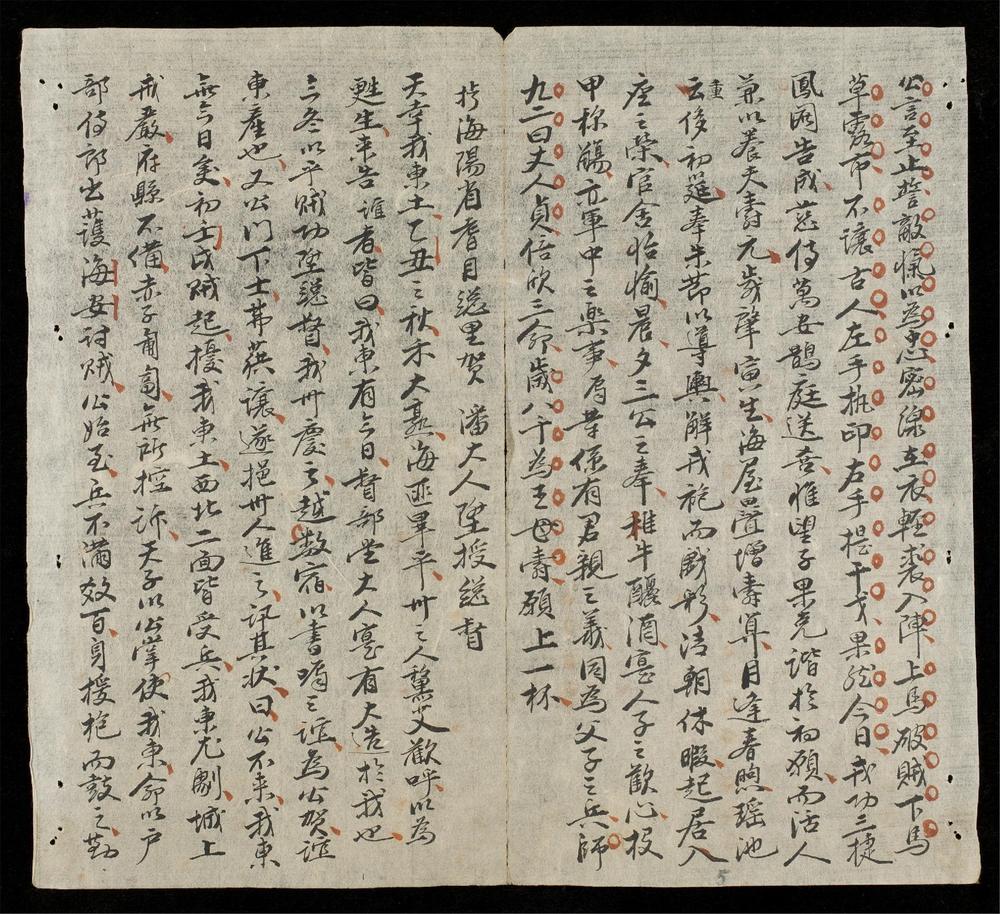 公言至止誓敵愾以爲忠密線在衣輕裘入陣上馬破賊下馬
草露布不讓古人左手執印右手提干戈果然今日我功三捷
鳳闕告成慈侍萬安鵲庭送喜惟望子果克諧於初願而活人
兼以養夫壽元歲肇寅生海屋疊增壽算月逢春煦瑤池
重云侈初筵奉朱節以導輿解戎袍而戲彩清朝休暇起居八
座之榮官舍怡愉晨夕三公之奉椎牛釃酒宴人子之歡心投
甲稱觴亦軍中之樂事屑等係有君親之義因爲父子之兵師
九二曰丈人貞倍欣三命歲八千為王母壽願上一杯
擬海陽省耆目總里賀潘大人陞授總督
天幸我東土乙丑之秋禾大熟海匪畢平卅之人黧艾歡呼以為
甦生來告誼者皆曰我東有今日督部堂大人寔有大造於我也
三冬以平賊功陞總督我卅慶之越數宿以書嘱之誼為公賀誼
東產也又公門下士弗獲讓遂挹卅人進之訊其狀曰公不來我東
無今日矣初壬戌賊起擾我東土西北二面皆受兵我東尤劇城上
戒嚴府縣不備赤子匍匐無所控訴天子以公掌使我東命以戶
部侍郎出護海安討賊公始至兵不滿数百身援枹而鼓之勤